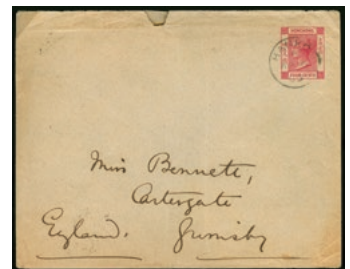 Miss Bennett,
Cartergate
England. Grimsby